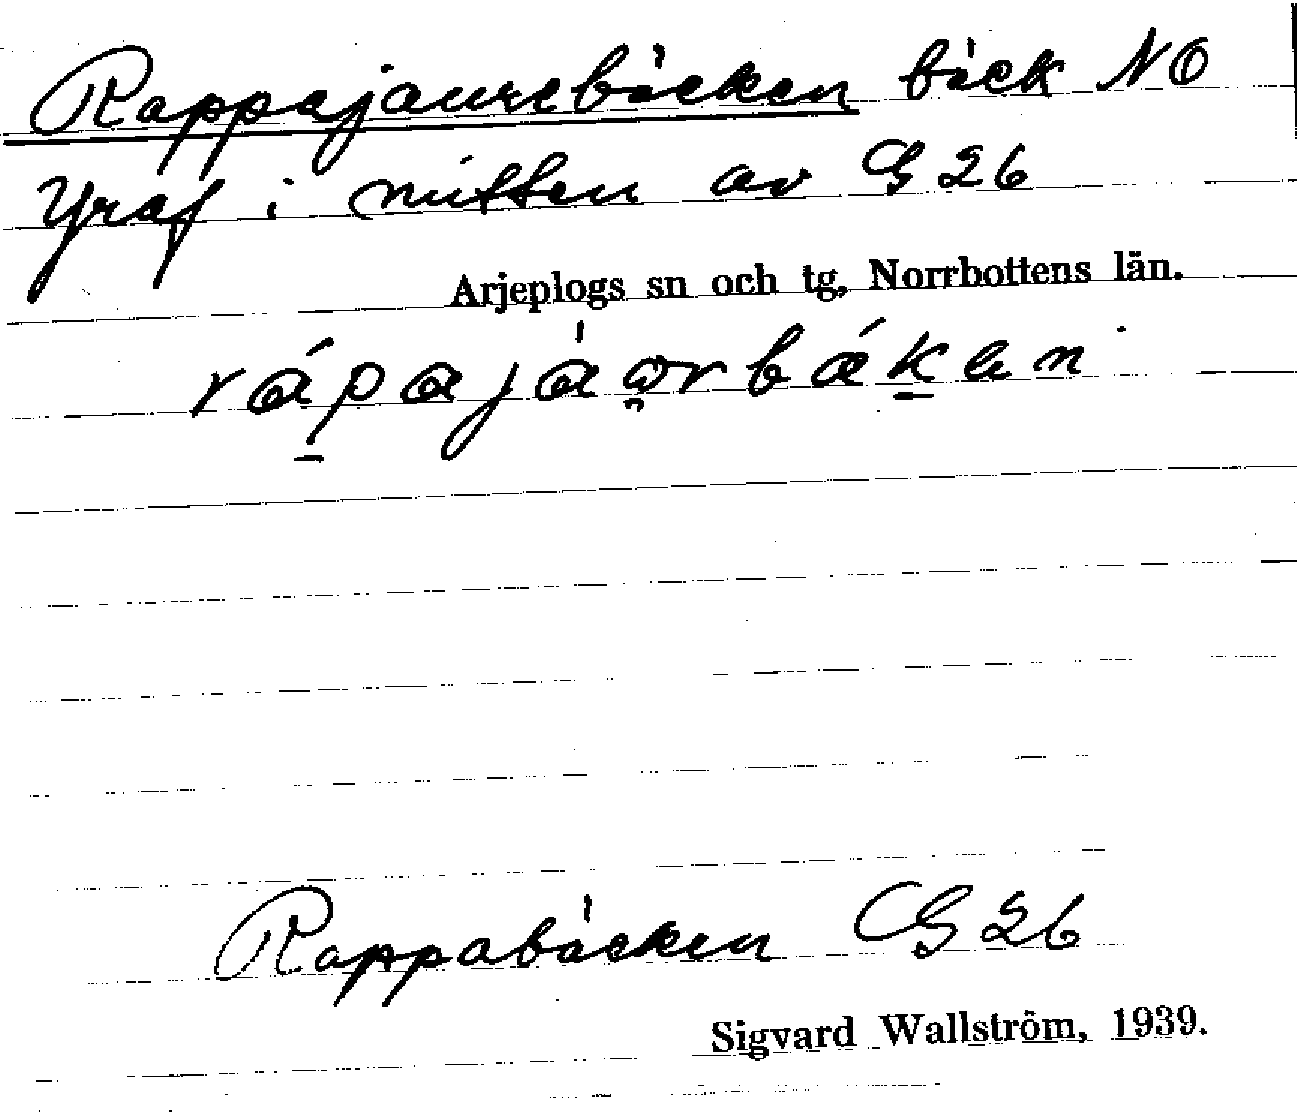 Rappajaurebäcken bäck NO
Yraf i mitten av G 26
Arjeplogs sn och tg, Norrbottens län.
Rappabäcken G 26
Sigvard Wallström, 1939.